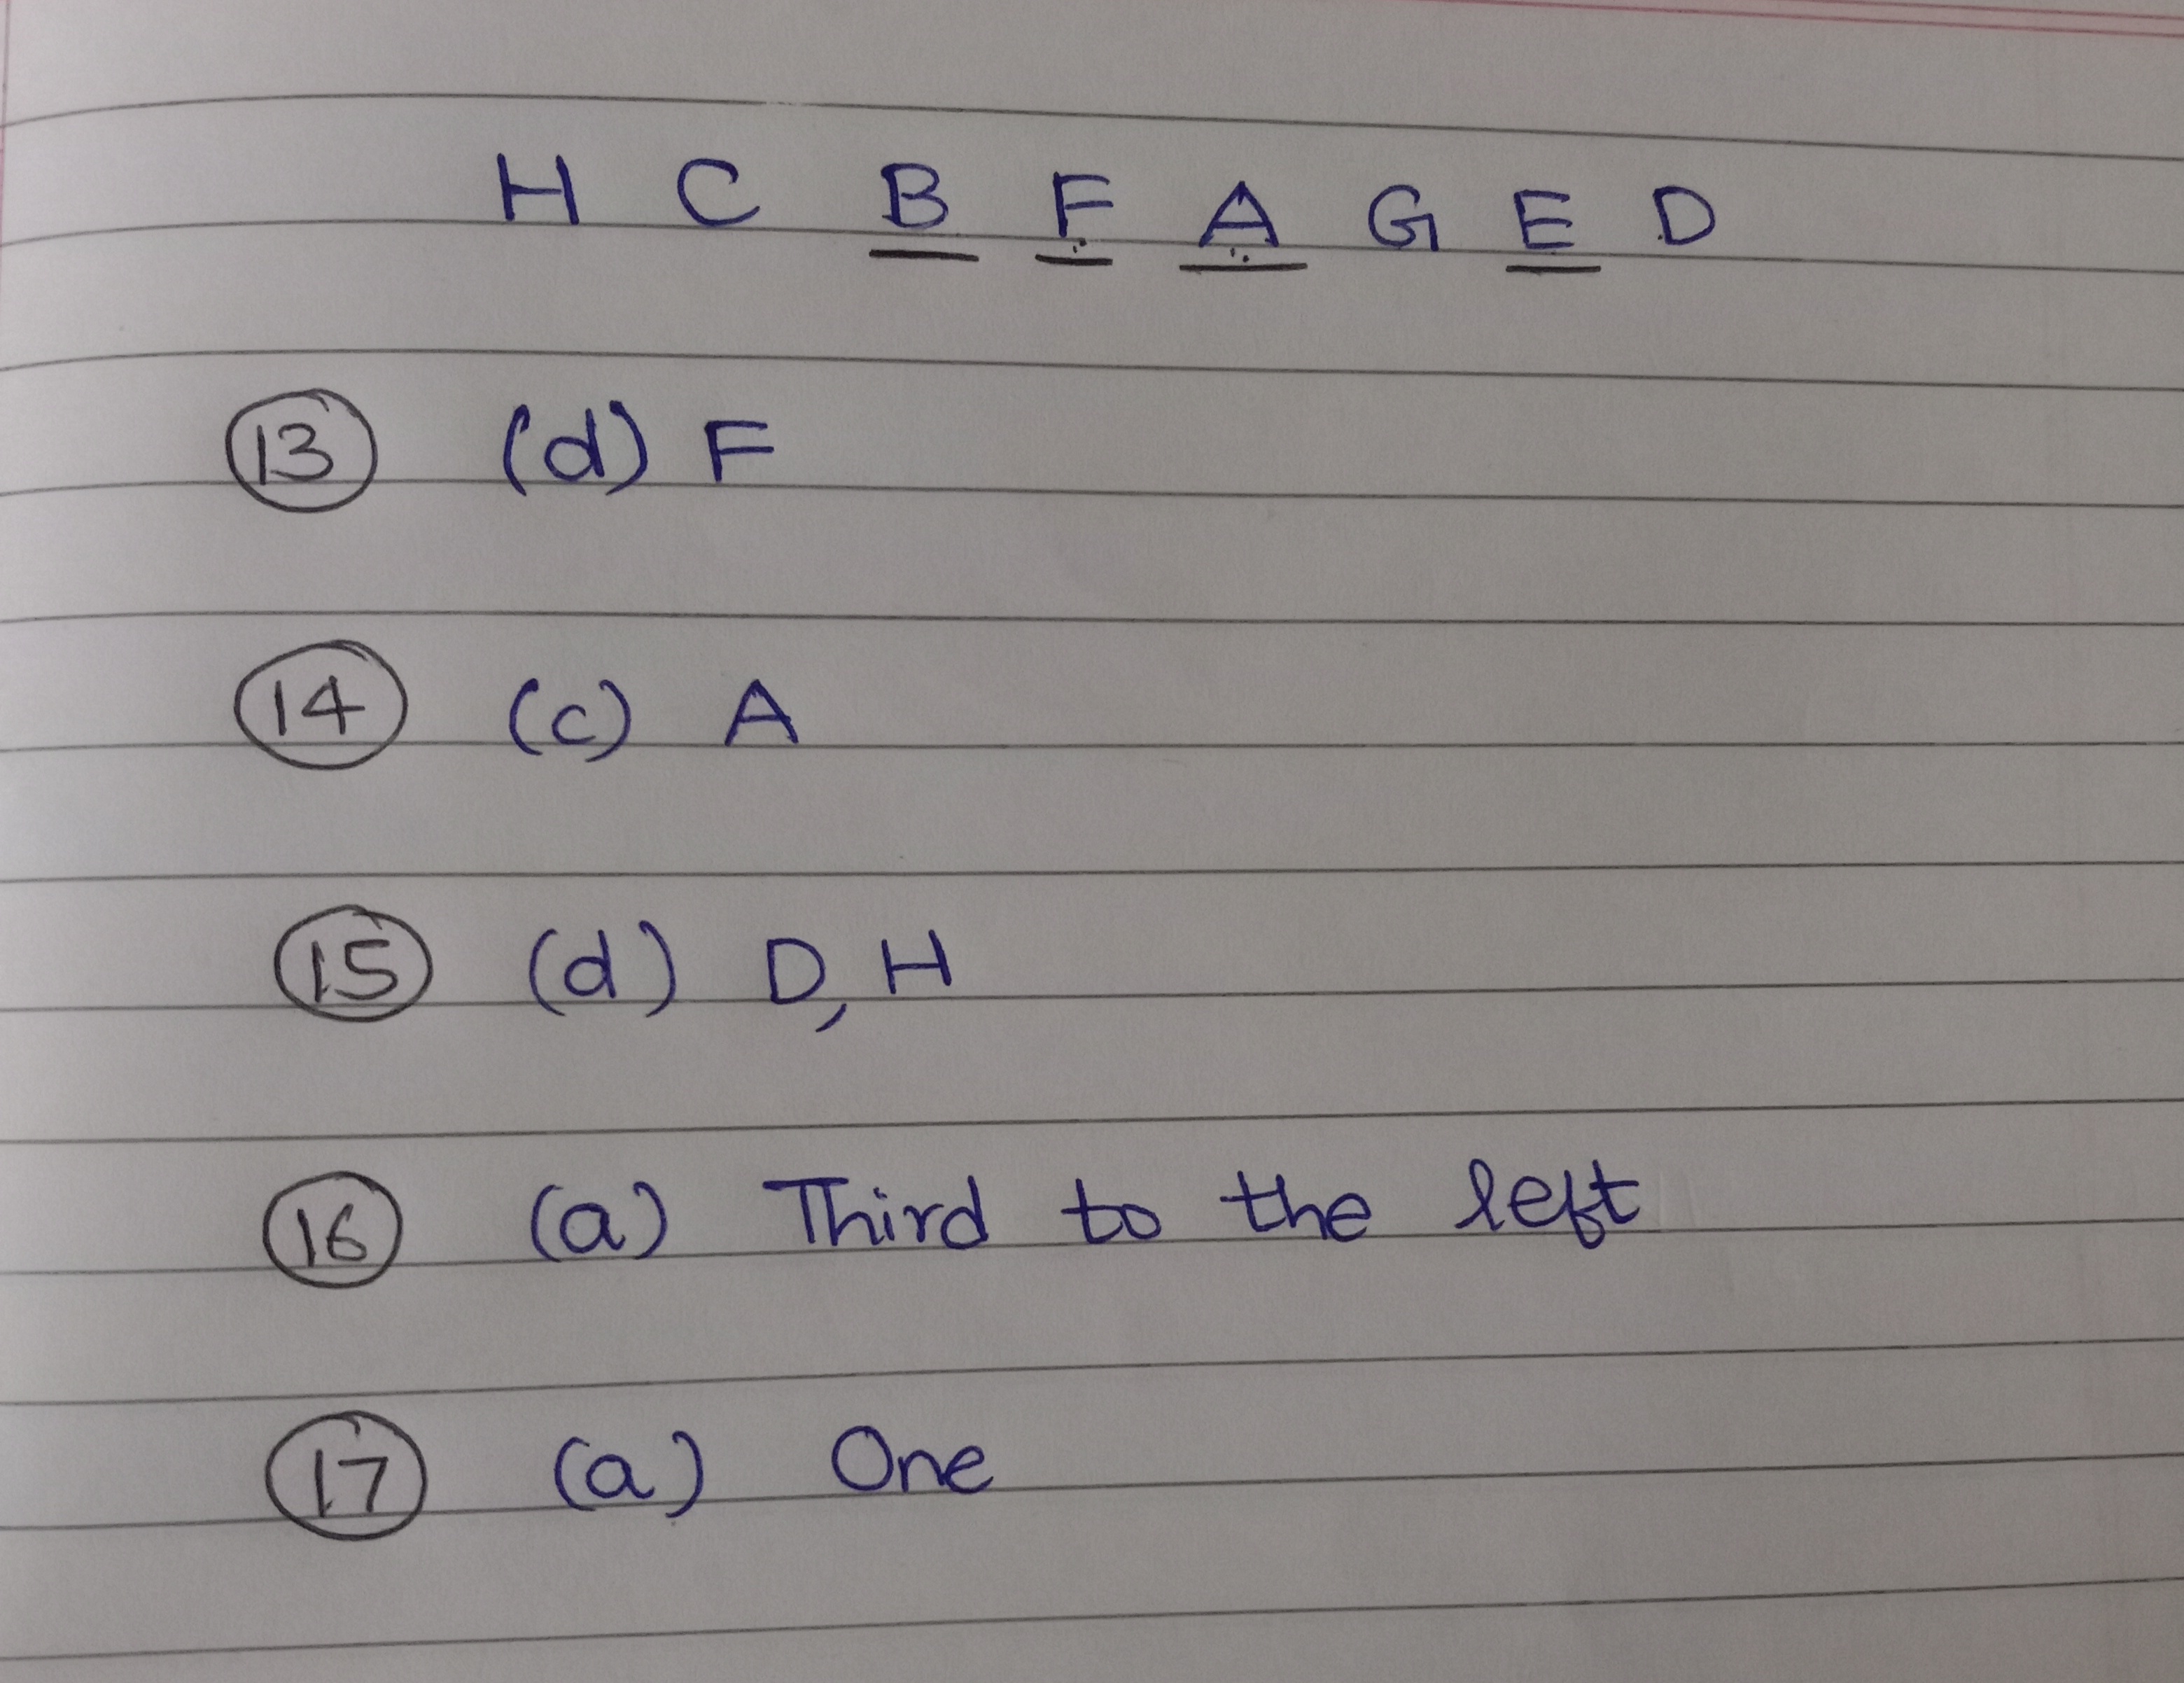 H C B F A G E D
13 (d) F
14 (c) A
15 (d) D, H
16 (a) Third to the left
17 (a) One